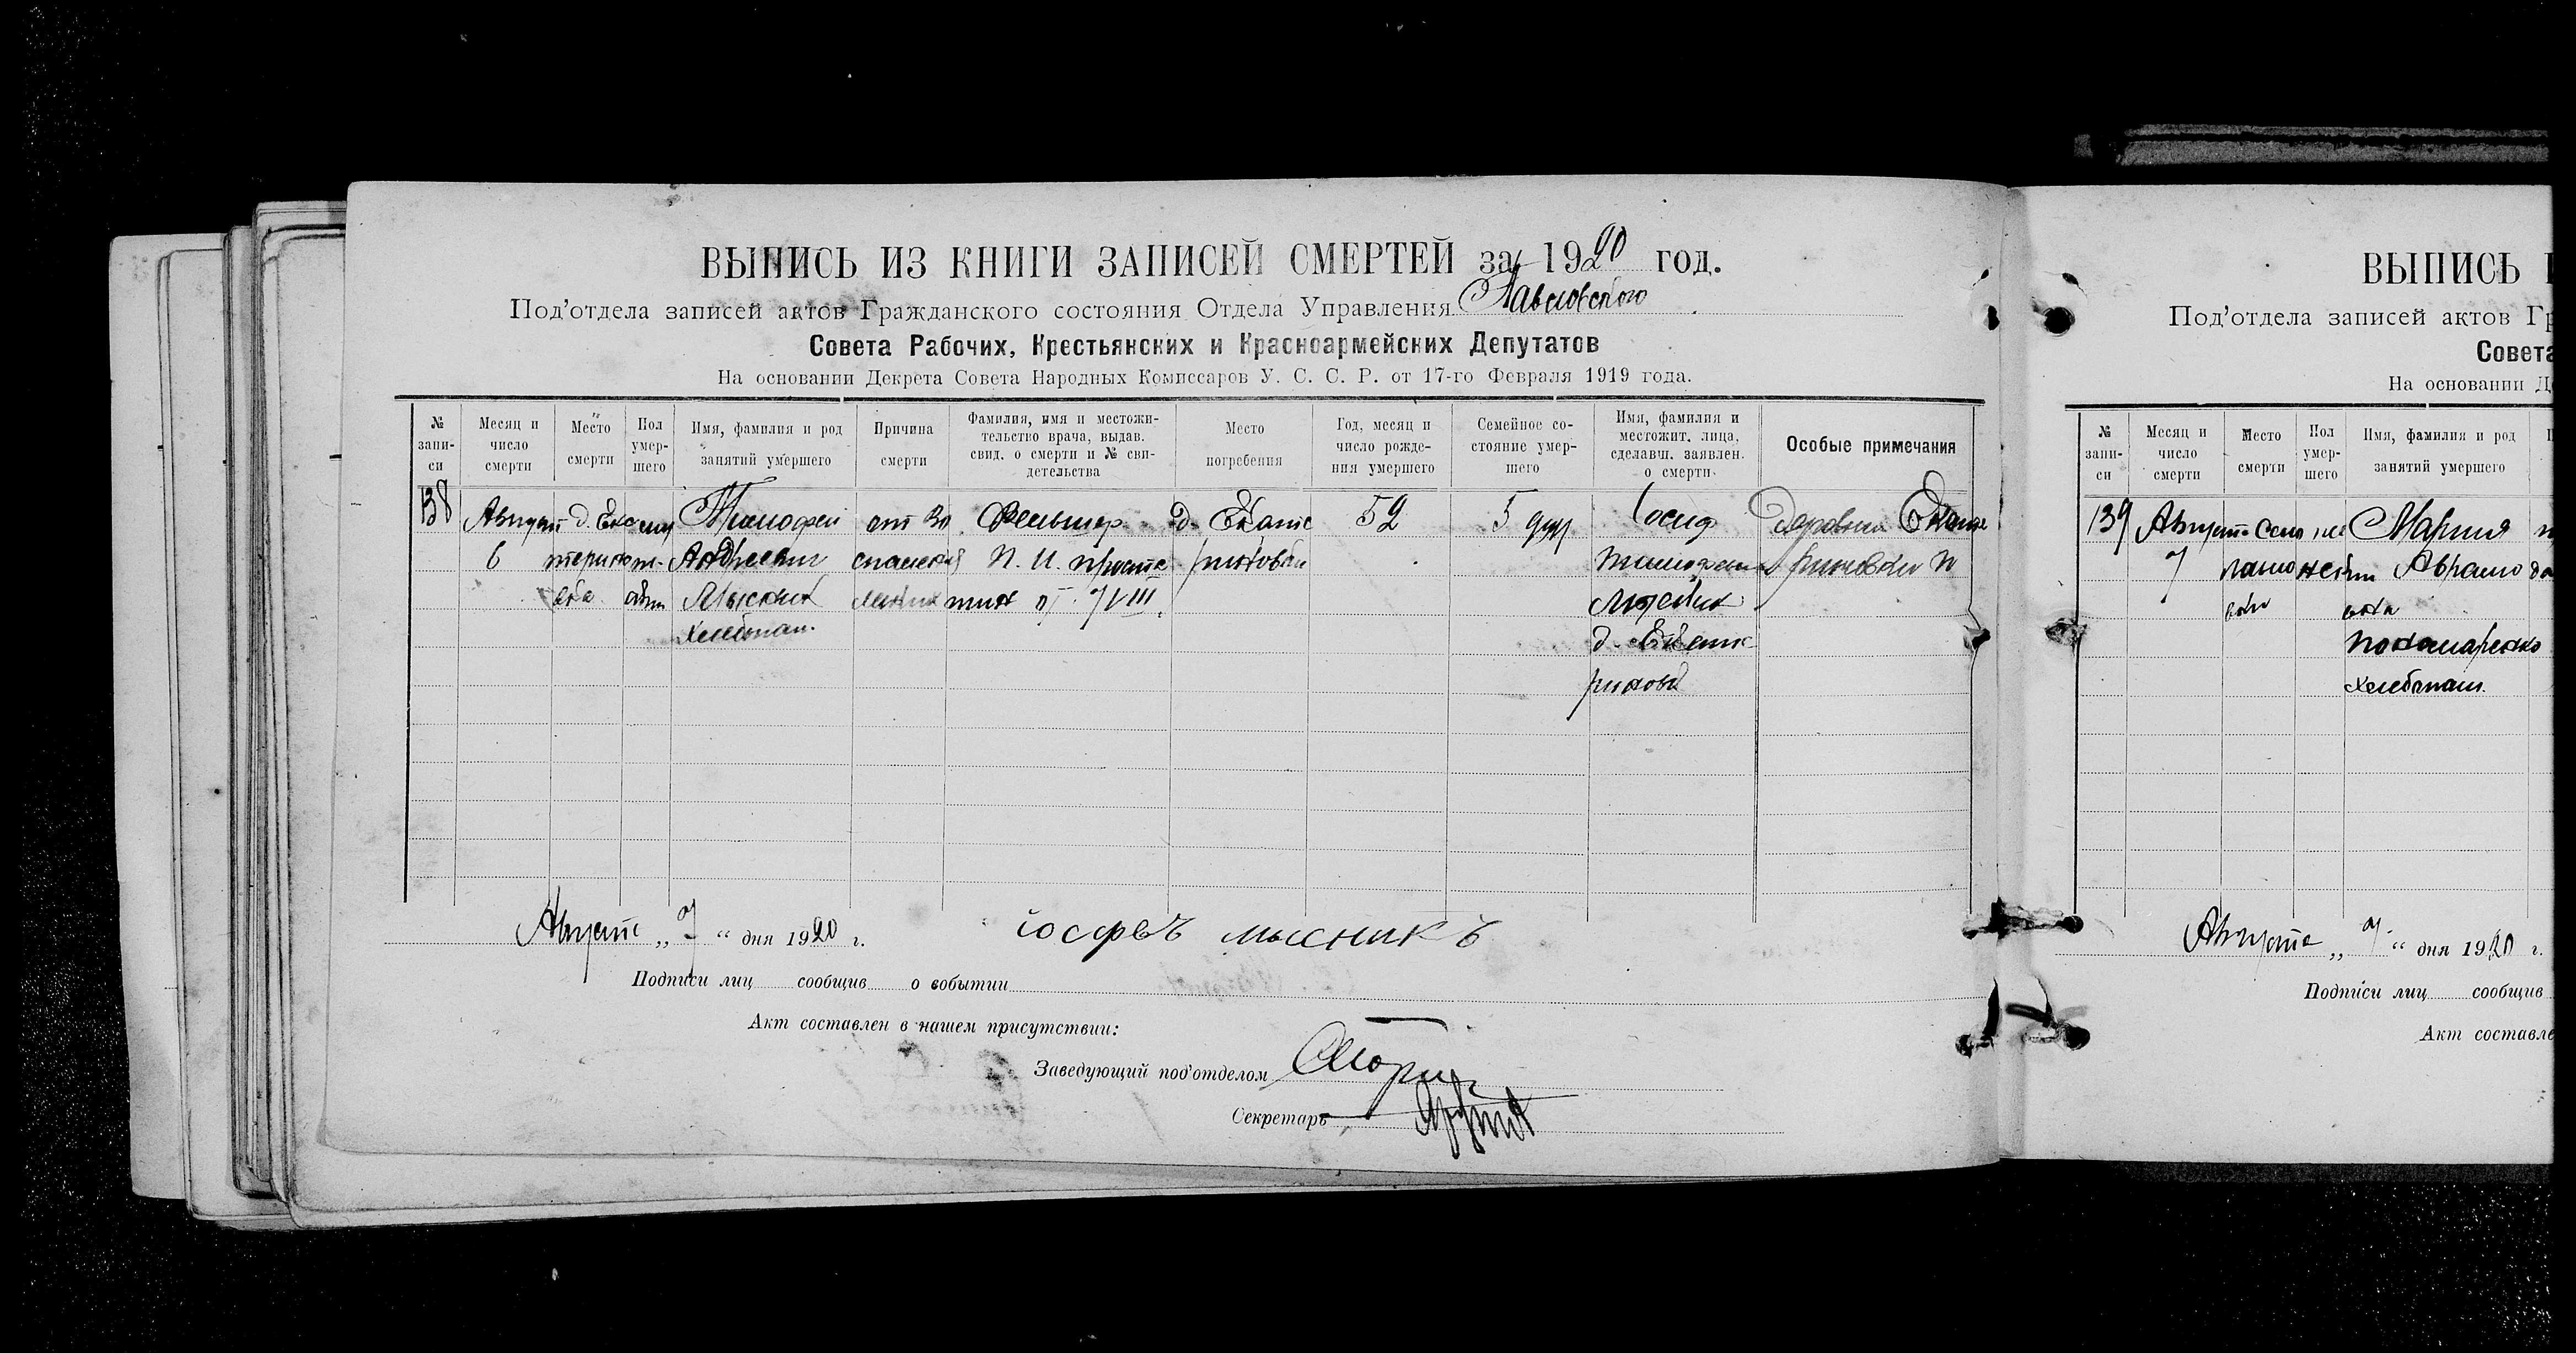 ВЫПИСЬ ИЗ КНИГИ ЗАПИСЕЙ СМЕРТЕЙ за 1920 год.
Под'отдела записей актов Гражданского состояния Отдела Управления Павловского
Совета Рабочих, Крестьянских и Красноармейских Депутатов
На основании Декрета Совета Народных Комиссаров У. С. С. Р. от 17-го Февраля 1919 года.
№ запи-си
Месяц и число смерти
Место смерти
Пол умер-шего
Имя, фамилия и род занятий умершего
Причина смерти
Фамилия, имя и местожи-тельство врача, выдав. свид. о смерти и № сви-детельства
Место погребения
Год, месяц и число рожде-ния умершего
Семейное со-стояние умер-шего
Имя, фамилия и местожит. лица, сделавш. заявлен. о смерти
Особые примечания
138
Август
6
д. Ека
терино
вка
Тимофей
Андреевич
Мысник
хлебопаш.
от во
спаления
легких
Фельшер
П. И.
от 7/VIII
д. Екате
риновки
52
5 душ
Иосиф
Тимофеев
Мысник
д. Екате
риновк
деревни Екате
риновки
Августа „ 7 “ дня 1920 г.
іосифъ мысникъ
Подписи лиц сообщив о событии
Акт составлен в нашем присутствии:
Заведующий под'отделом
Секретарь
ВЫПИСЬ
Под'отдела записей актов Гр
Совета
На основании Д
№ запи-си
Месяц и число смерти
Место смерти
Пол умер-шего
Имя, фамилия и род занятий умершего
139
Август
7
село
жен
Мария
Аврамо
вна
Понамаренко
хлебопаш.
Августа „ 7 “ дня 1920 г.
Подписи лиц сообщив
Акт составле